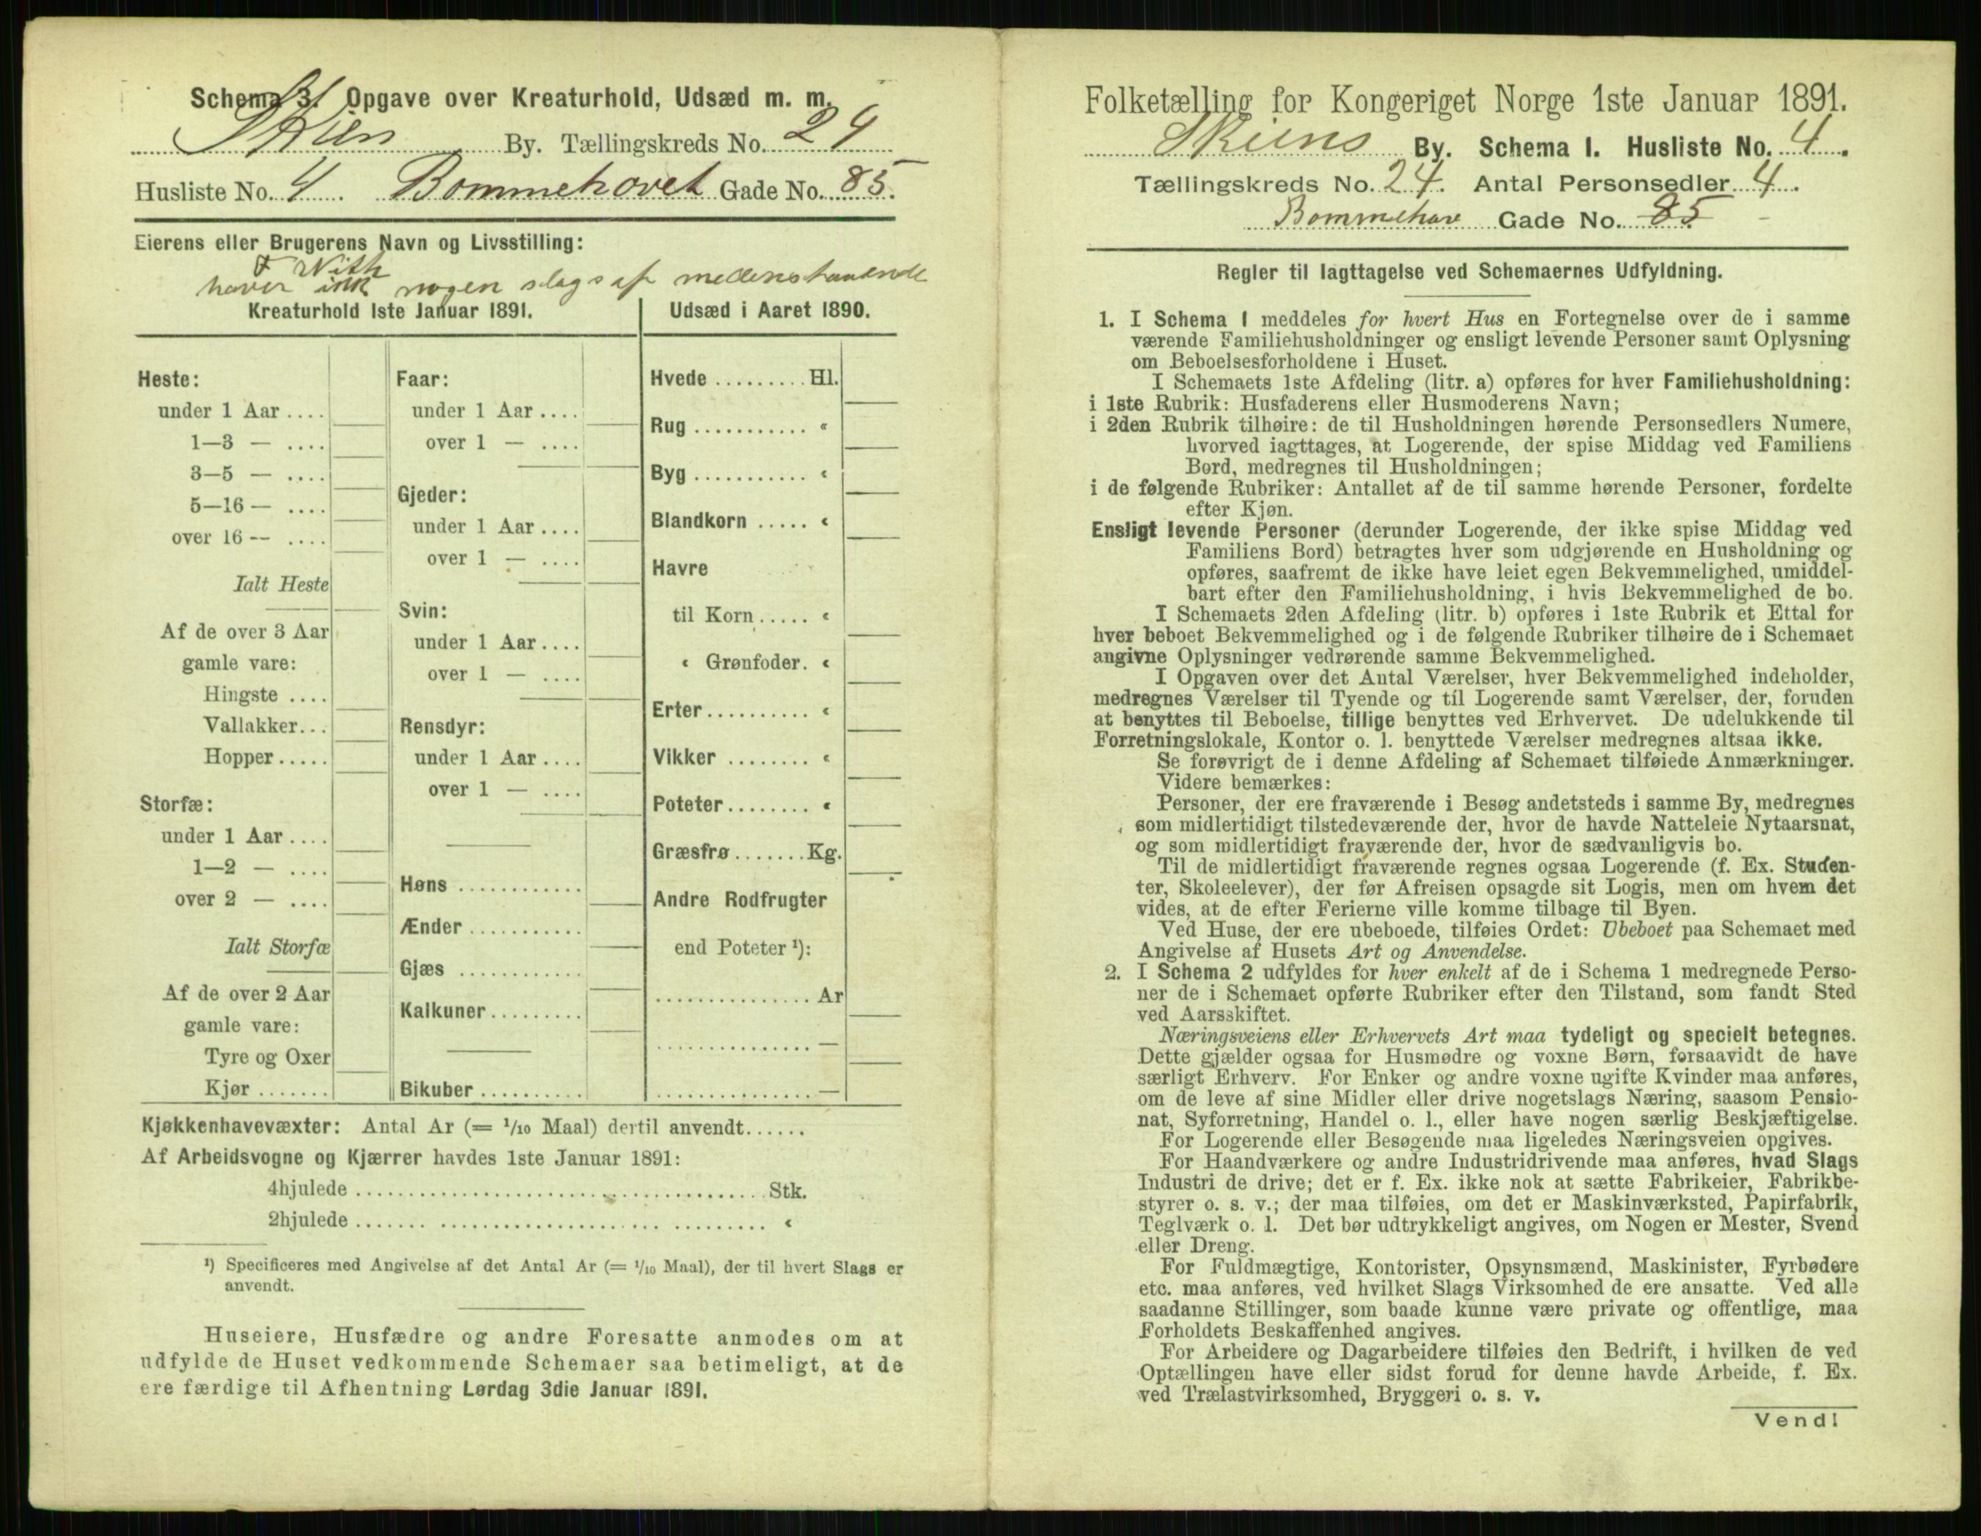 Schema 3. Opgave over Kreaturhold, Udsæd m. m.
Skien By. Tællingskreds No. 24
Husliste No. 4. Bommehovet Gade No. 85.
Eierens eller Brugerens Navn og Livsstilling:
With
haver ikk nogen slags af medenstaaende
Kreaturhold 1ste Januar 1891.
Udsæd i Aaret 1890.
Heste:
under 1 Aar ....
1—3 — ....
3—5 — ....
5—16 — ....
over 16 -- ....
Ialt Heste
Af de over 3 Aar
gamle vare:
Hingste ....
Vallakker...
Hopper.....
Storfæ:
under 1 Aar ....
1—2 — ....
over 2 — ....
Ialt Storfæ
Af de over 2 Aar
gamle vare:
Tyre og Oxer
Kjør .......
Faar:
under 1 Aar ....
over 1 — ....
Gjeder:
under 1 Aar ....
over 1 — ....
Svin:
under 1 Aar ....
over 1 — ....
Rensdyr:
under 1 Aar ....
over 1 — ....
Høns ............
Ænder ...........
Gjæs ............
Kalkuner.........
Bikuber ..........
Hvede ......... Hl.
Rug ........... «
Byg ........... «
Blandkorn ..... «
Havre
til Korn ..... «
« Grønfoder. «
Erter.......... «
Vikker ........ «
Poteter........ «
Græsfrø ....... Kg.
Andre Rodfrugter
end Poteter ¹):
............... Ar
............... —
............... —
Kjøkkenhavevæxter: Antal Ar (= 1/10 Maal) dertil anvendt......
Af Arbeidsvogne og Kjærrer havdes 1ste Januar 1891:
4hjulede ........................................ Stk.
2hjulede ........................................ «
¹) Specificeres med Angivelse af det Antal Ar (= 1/10 Maal), der til hvert Slags er
anvendt.
Huseiere, Husfædre og andre Foresatte anmodes om at
udfylde de Huset vedkommende Schemaer saa betimeligt, at de
ere færdige til Afhentning Lørdag 3die Januar 1891.
Folketælling for Kongeriget Norge 1ste Januar 1891.
Skiens By. Schema I. Husliste No. 4.
Tællingskreds No. 24. Antal Personsedler 4.
Bommehave Gade No. 85
Regler til Iagttagelse ved Schemaernes Udfyldning.
1. I Schema 1 meddeles for hvert Hus en Fortegnelse over de i samme
værende Familiehusholdninger og ensligt levende Personer samt Oplysning
om Beboelsesforholdene i Huset.
I Schemaets 1ste Afdeling (litr. a) opføres for hver Familiehusholdning:
i 1ste Rubrik: Husfaderens eller Husmoderens Navn;
i 2den Rubrik tilhøire: de til Husholdningen hørende Personsedlers Numere,
hvorved iagttages, at Logerende, der spise Middag ved Familiens
Bord, medregnes til Husholdningen;
i de følgende Rubriker: Antallet af de til samme hørende Personer, fordelte
efter Kjøn.
Ensligt levende Personer (derunder Logerende, der ikke spise Middag ved
Familiens Bord) betragtes hver som udgjørende en Husholdning og
opføres, saafremt de ikke have leiet egen Bekvemmelighed, umiddel-
bart efter den Familiehusholdning, i hvis Bekvemmelighed de bo.
I Schemaets 2den Afdeling (litr. b) opføres i 1ste Rubrik et Ettal for
hver beboet Bekvemmelighed og i de følgende Rubriker tilhøire de i Schemaet
angivne Oplysninger vedrørende samme Bekvemmelighed.
I Opgaven over det Antal Værelser, hver Bekvemmelighed indeholder,
medregnes Værelser til Tyende og til Logerende samt Værelser, der, foruden
at benyttes til Beboelse, tillige benyttes ved Erhvervet. De udelukkende til
Forretningslokale, Kontor o. l. benyttede Værelser medregnes altsaa ikke.
Se forøvrigt de i denne Afdeling af Schemaet tilføiede Anmærkninger.
Videre bemærkes:
Personer, der ere fraværende i Besøg andetsteds i samme By, medregnes
som midlertidigt tilstedeværende der, hvor de havde Natteleie Nytaarsnat,
og som midlertidigt fraværende der, hvor de sædvanligvis bo.
Til de midlertidigt fraværende regnes ogsaa Logerende (f. Ex. Studen-
ter, Skoleelever), der før Afreisen opsagde sit Logis, men om hvem det
vides, at de efter Ferierne ville komme tilbage til Byen.
Ved Huse, der ere ubeboede, tilføies Ordet: Ubeboet paa Schemaet med
Angivelse af Husets Art og Anvendelse.
2. I Schema 2 udfyldes for hver enkelt af de i Schema 1 medregnede Perso-
ner de i Schemaet opførte Rubriker efter den Tilstand, som fandt Sted
ved Aarsskiftet.
Næringsveiens eller Erhvervets Art maa tydeligt og specielt betegnes.
Dette gjælder ogsaa for Husmødre og voxne Børn, forsaavidt de have
særligt Erhverv. For Enker og andre voxne ugifte Kvinder maa anføres,
om de leve af sine Midler eller drive nogetslags Næring, saasom Pensio-
nat, Syforretning, Handel o. l., eller have nogen særlig Beskjæftigelse.
For Logerende eller Besøgende maa ligeledes Næringsveien opgives.
For Haandværkere og andre Industridrivende maa anføres, hvad Slags
Industri de drive; det er f. Ex. ikke nok at sætte Fabrikeier, Fabrikbe-
styrer o. s. v.; der maa tilføies, om det er Maskinværksted, Papirfabrik,
Teglværk o. l. Det bør udtrykkeligt angives, om Nogen er Mester, Svend
eller Dreng.
For Fuldmægtige, Kontorister, Opsynsmænd, Maskinister, Fyrbødere
etc. maa anføres, ved hvilket Slags Virksomhed de ere ansatte. Ved alle
saadanne Stillinger, som baade kunne være private og offentlige, maa
Forholdets Beskaffenhed angives.
For Arbeidere og Dagarbeidere tilføies den Bedrift, i hvilken de ved
Optællingen have eller sidst forud for denne havde Arbeide, f. Ex.
ved Trælastvirksomhed, Bryggeri o. s. v.
Vend!